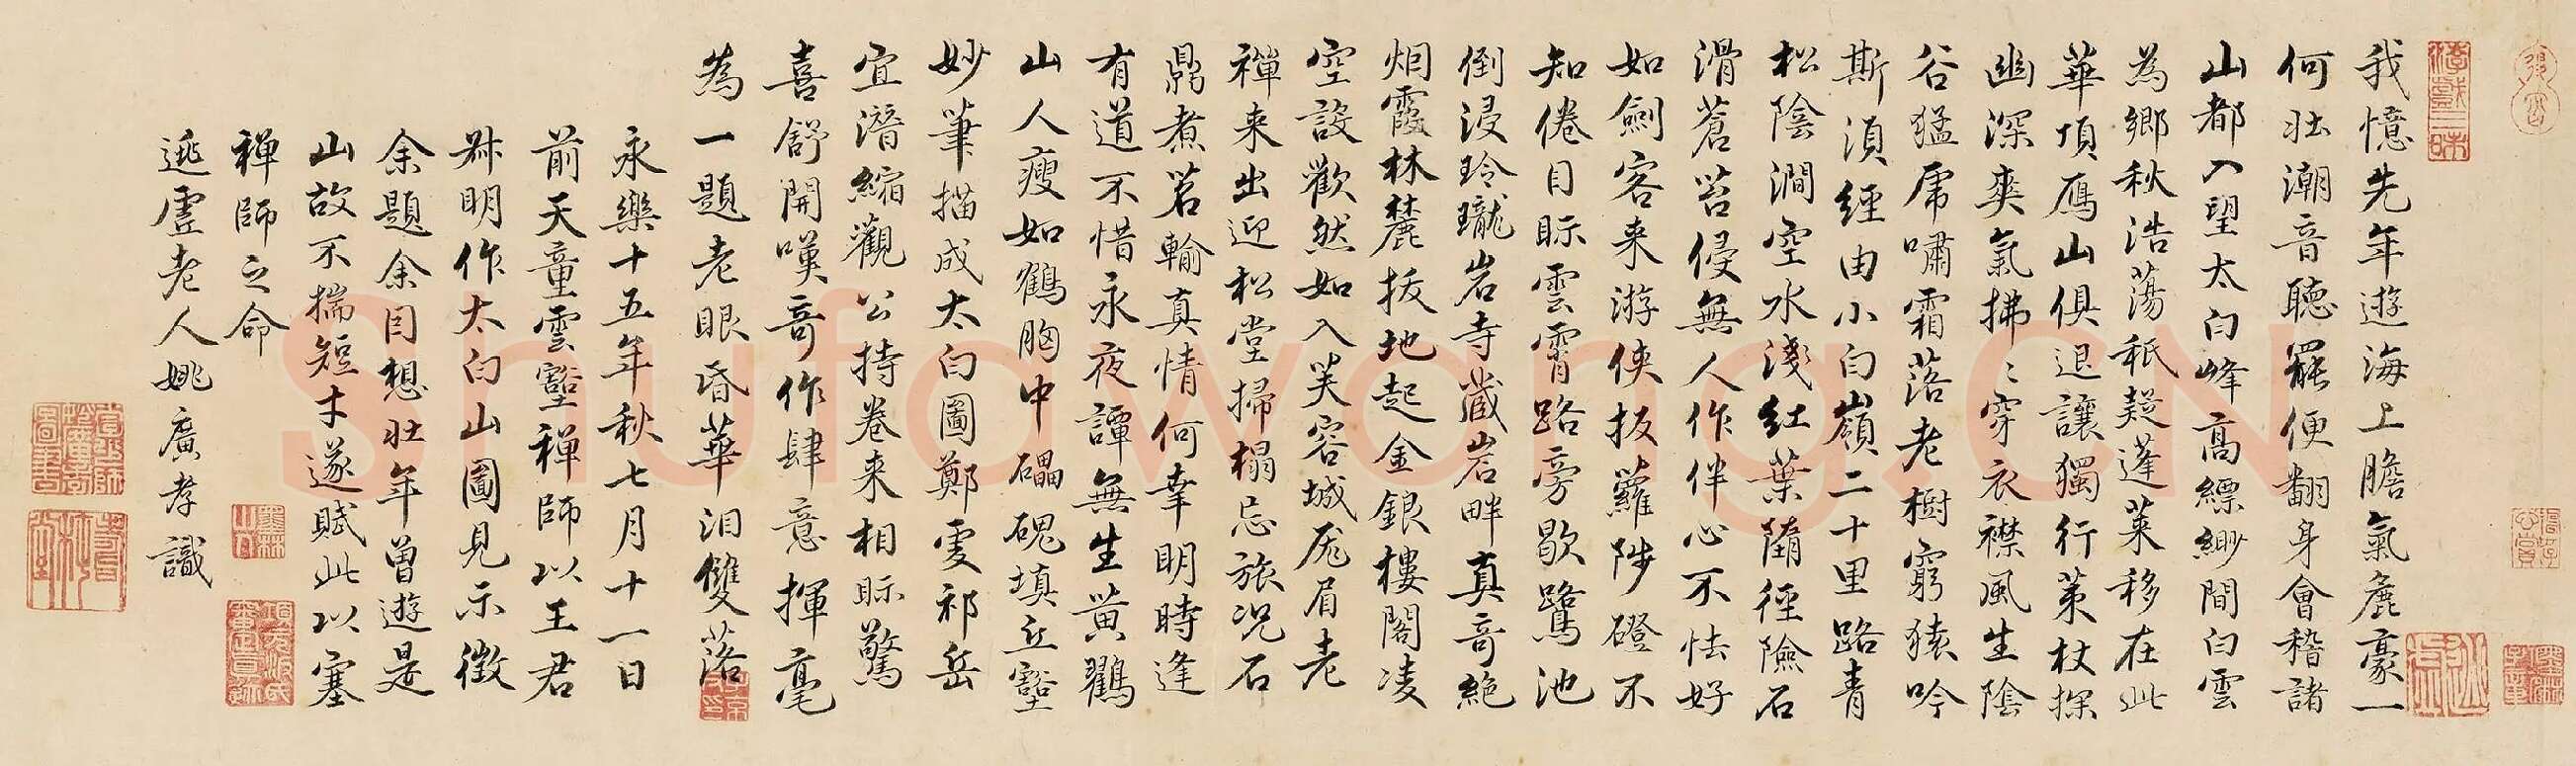 我憶先年遊海上膽氣麁豪一
何壯潮音聽罷便翻身會稽諸
山都入望太白峰高縹緲間白雲
為鄉秋浩蕩秖疑蓬萊移在此
華頂鴈山俱退讓獨行策杖探
幽深爽氣拂〻穿衣襟風生陰
谷猛虎嘯霜落老樹窮猿吟
斯須經由小白嶺二十里路青
松陰澗空水淺紅葉隋徑險石
滑蒼苔侵無人作伴心不怯好
如劍客來游俠扳蘿陟磴不
知倦目眎雲霄路旁歇鷺池
倒浸玲瓏岩寺藏岩畔真奇絶
烟霞林麓拔地起金銀樓閣凌
空設歡然如入芙容城厖眉老
禪来出迎松堂掃榻忘旅况石
鼎煮茗輸真情何幸明時逢
有道不惜永夜譚無生黃鸐
山人瘦如鶴胸中礧磈填丘壑
妙筆描成太白圖鄭虔祁岳
宜潛縮觀公持卷来相眎驚
喜舒開嘆奇作肆意揮毫
為一題老眼昏華泪雙落
永樂十五年秋七月十一日
前天童雲壑禅師以王君
叔明作太白山圖見示徵
余題余因想壯年曾遊是
山故不揣短才遂賦此以塞
禅師之命
逃虛老人姚廣孝識
Shufawang.CN